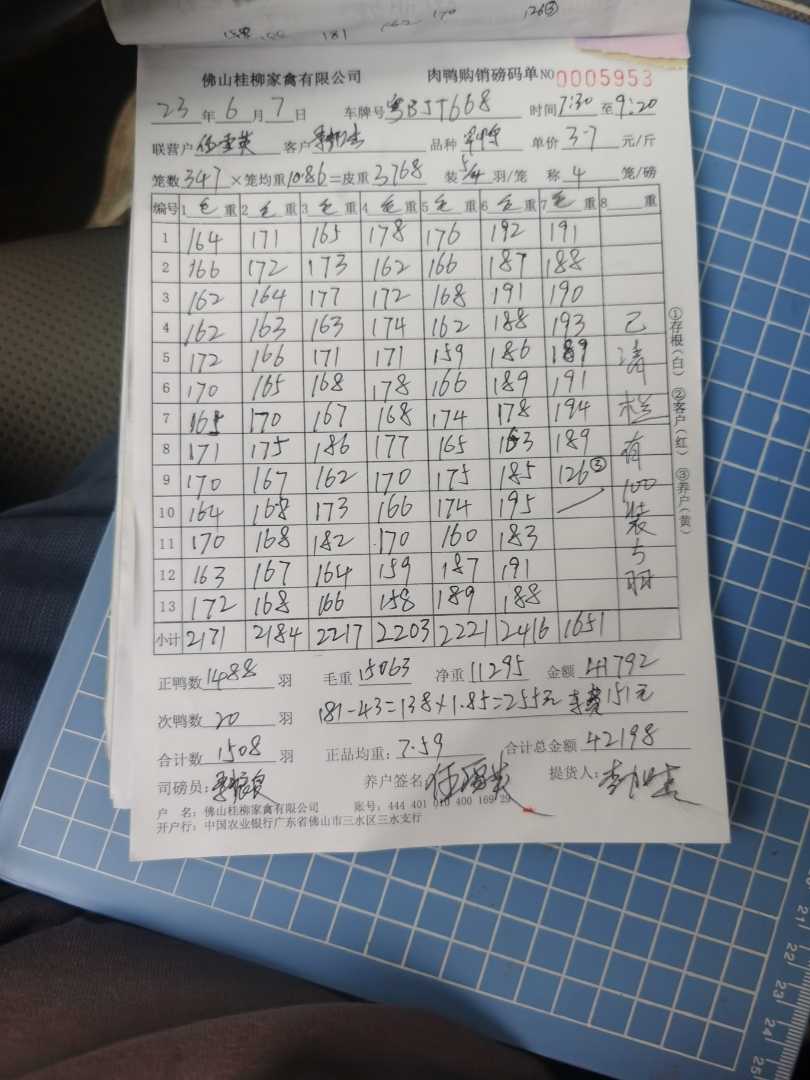 170
126③
181
佛山桂柳家禽有限公司 肉鸭购销磅码单 NO 0005953
23 年 6 月 7 日 车牌号 粤BJT668 时间 7:30 至 9:20
联营户 客户 品种 单价 3.7 元/斤
笼数 347 ×笼均重 10.86 =皮重 3768 装 5/4 羽/笼 称 4 笼/磅
编号 1 毛 重 2 毛 重 3 毛 重 4 毛 重 5 毛 重 6 毛 重 7 毛 重 8 重
1 164 171 165 178 176 192 191
2 166 172 173 162 166 187 188
3 162 164 177 172 168 191 190
4 162 163 163 174 162 188 193
5 172 166 171 171 159 186 189
6 170 165 168 178 166 189 191
7 165 170 167 168 174 178 194
8 171 175 186 177 165 163 189
9 170 167 162 170 175 185 126③
10 164 168 173 166 174 195
11 170 168 182 170 160 183
12 163 167 164 159 187 191
13 172 168 166 158 189 188
小计 2171 2184 2217 2203 2221 2416 1651
已清栏有100装5羽
①存根(白) ②客户(红) ③养户(黄)
正鸭数 1488 羽 毛重 15063 净重 11295 金额 41792
次鸭数 20 羽 181-43=138×1.85=255元 车费151元
合计数 1508 羽 正品均重: 7.59 合计总金额 42198
司磅员: 养户签名: 提货人:
户 名: 佛山桂柳家禽有限公司 账号: 444 401 010 400 169 29
开户行: 中国农业银行广东省佛山市三水区三水支行
21
22
23
24
25